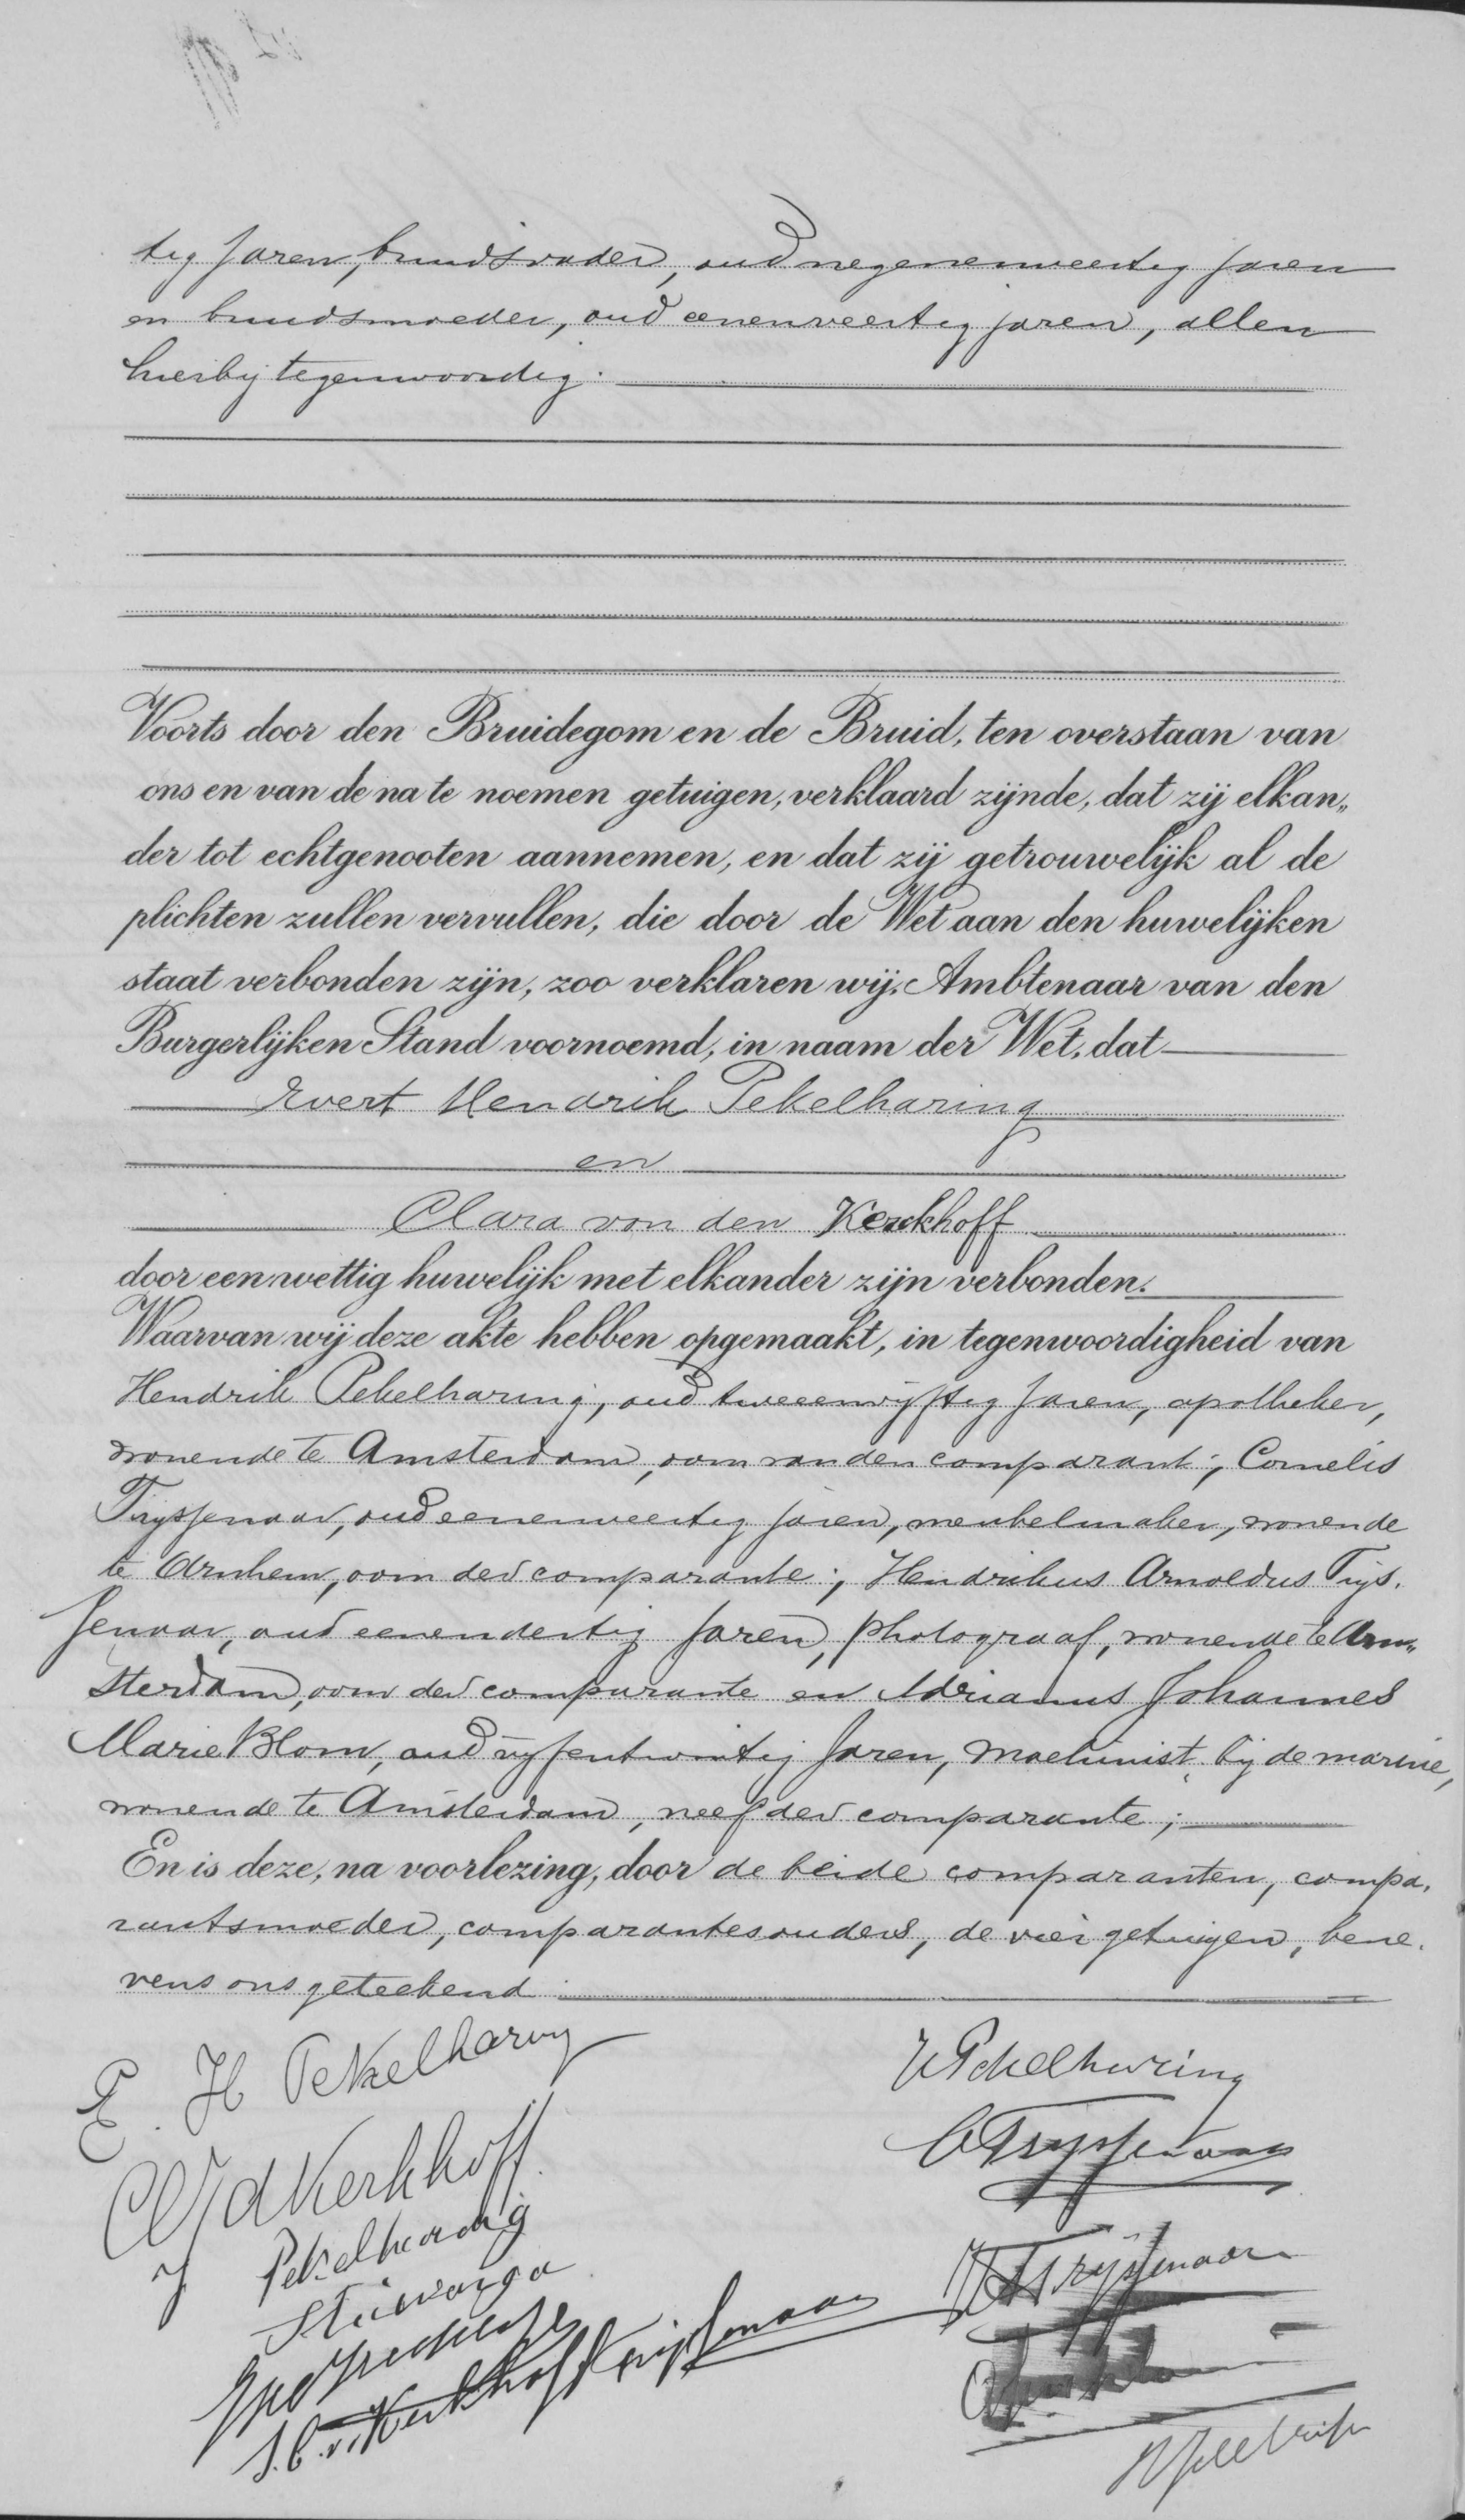 tig jaren, bruidsvader, oud negenenveertig jaren
en bruidsmoeder, oud eenenveertig jaren, allen
hierbij tegenwoordig.
Voorts door den Bruidegom en de Bruid, ten overstaan van
ons en van de na te noemen getuigen, verklaard zijnde, dat zij elkan„
der tot echtgenooten aannemen, en dat zij getrouwelijk al de
plichten zullen vervullen, die door de Wet aan den huwelijken
staat verbonden zijn, zoo verklaren wij, Ambtenaar van den
Burgerlijken Stand voornoemd, in naam der Wet, dat
Evert Hendrik Pekelharing
en
Clara von den Kerckhoff
door een wettig huwelijk met elkander zijn verbonden.
Waarvan wij deze akte hebben opgemaakt, in tegenwoordigheid van
Hendrik Pekelharing, oud tweeenvijftig jaren, apotheker,
wonende te Amsterdam, oom van den comparant; Cornelis
Tryssenaar, oud eenenveertig jaren, meubelmaker, wonende
te Arnhem, oom der comparante; Hendrikus Arnoldus Trys.
senaar, oud eenendertig jaren, photograaf, wonende te Am„
sterdam, oom der comparante en Adrianus Johannes
Marie Blom, oud vijfentwintig jaren, machinist bij de marine,
wonende te Amsterdam, neef der comparante;
En is deze, na voorlezing, door de beide comparanten, compa.
rantsmoeder, comparantesouders, de vier getuigen, bene.
vens ons geteekend.
E. H Pekelharing
H Pekelharing
CVdKerkhoff
CTryssenaar
J Pekelharing
Stuivanga
HATryssenaar